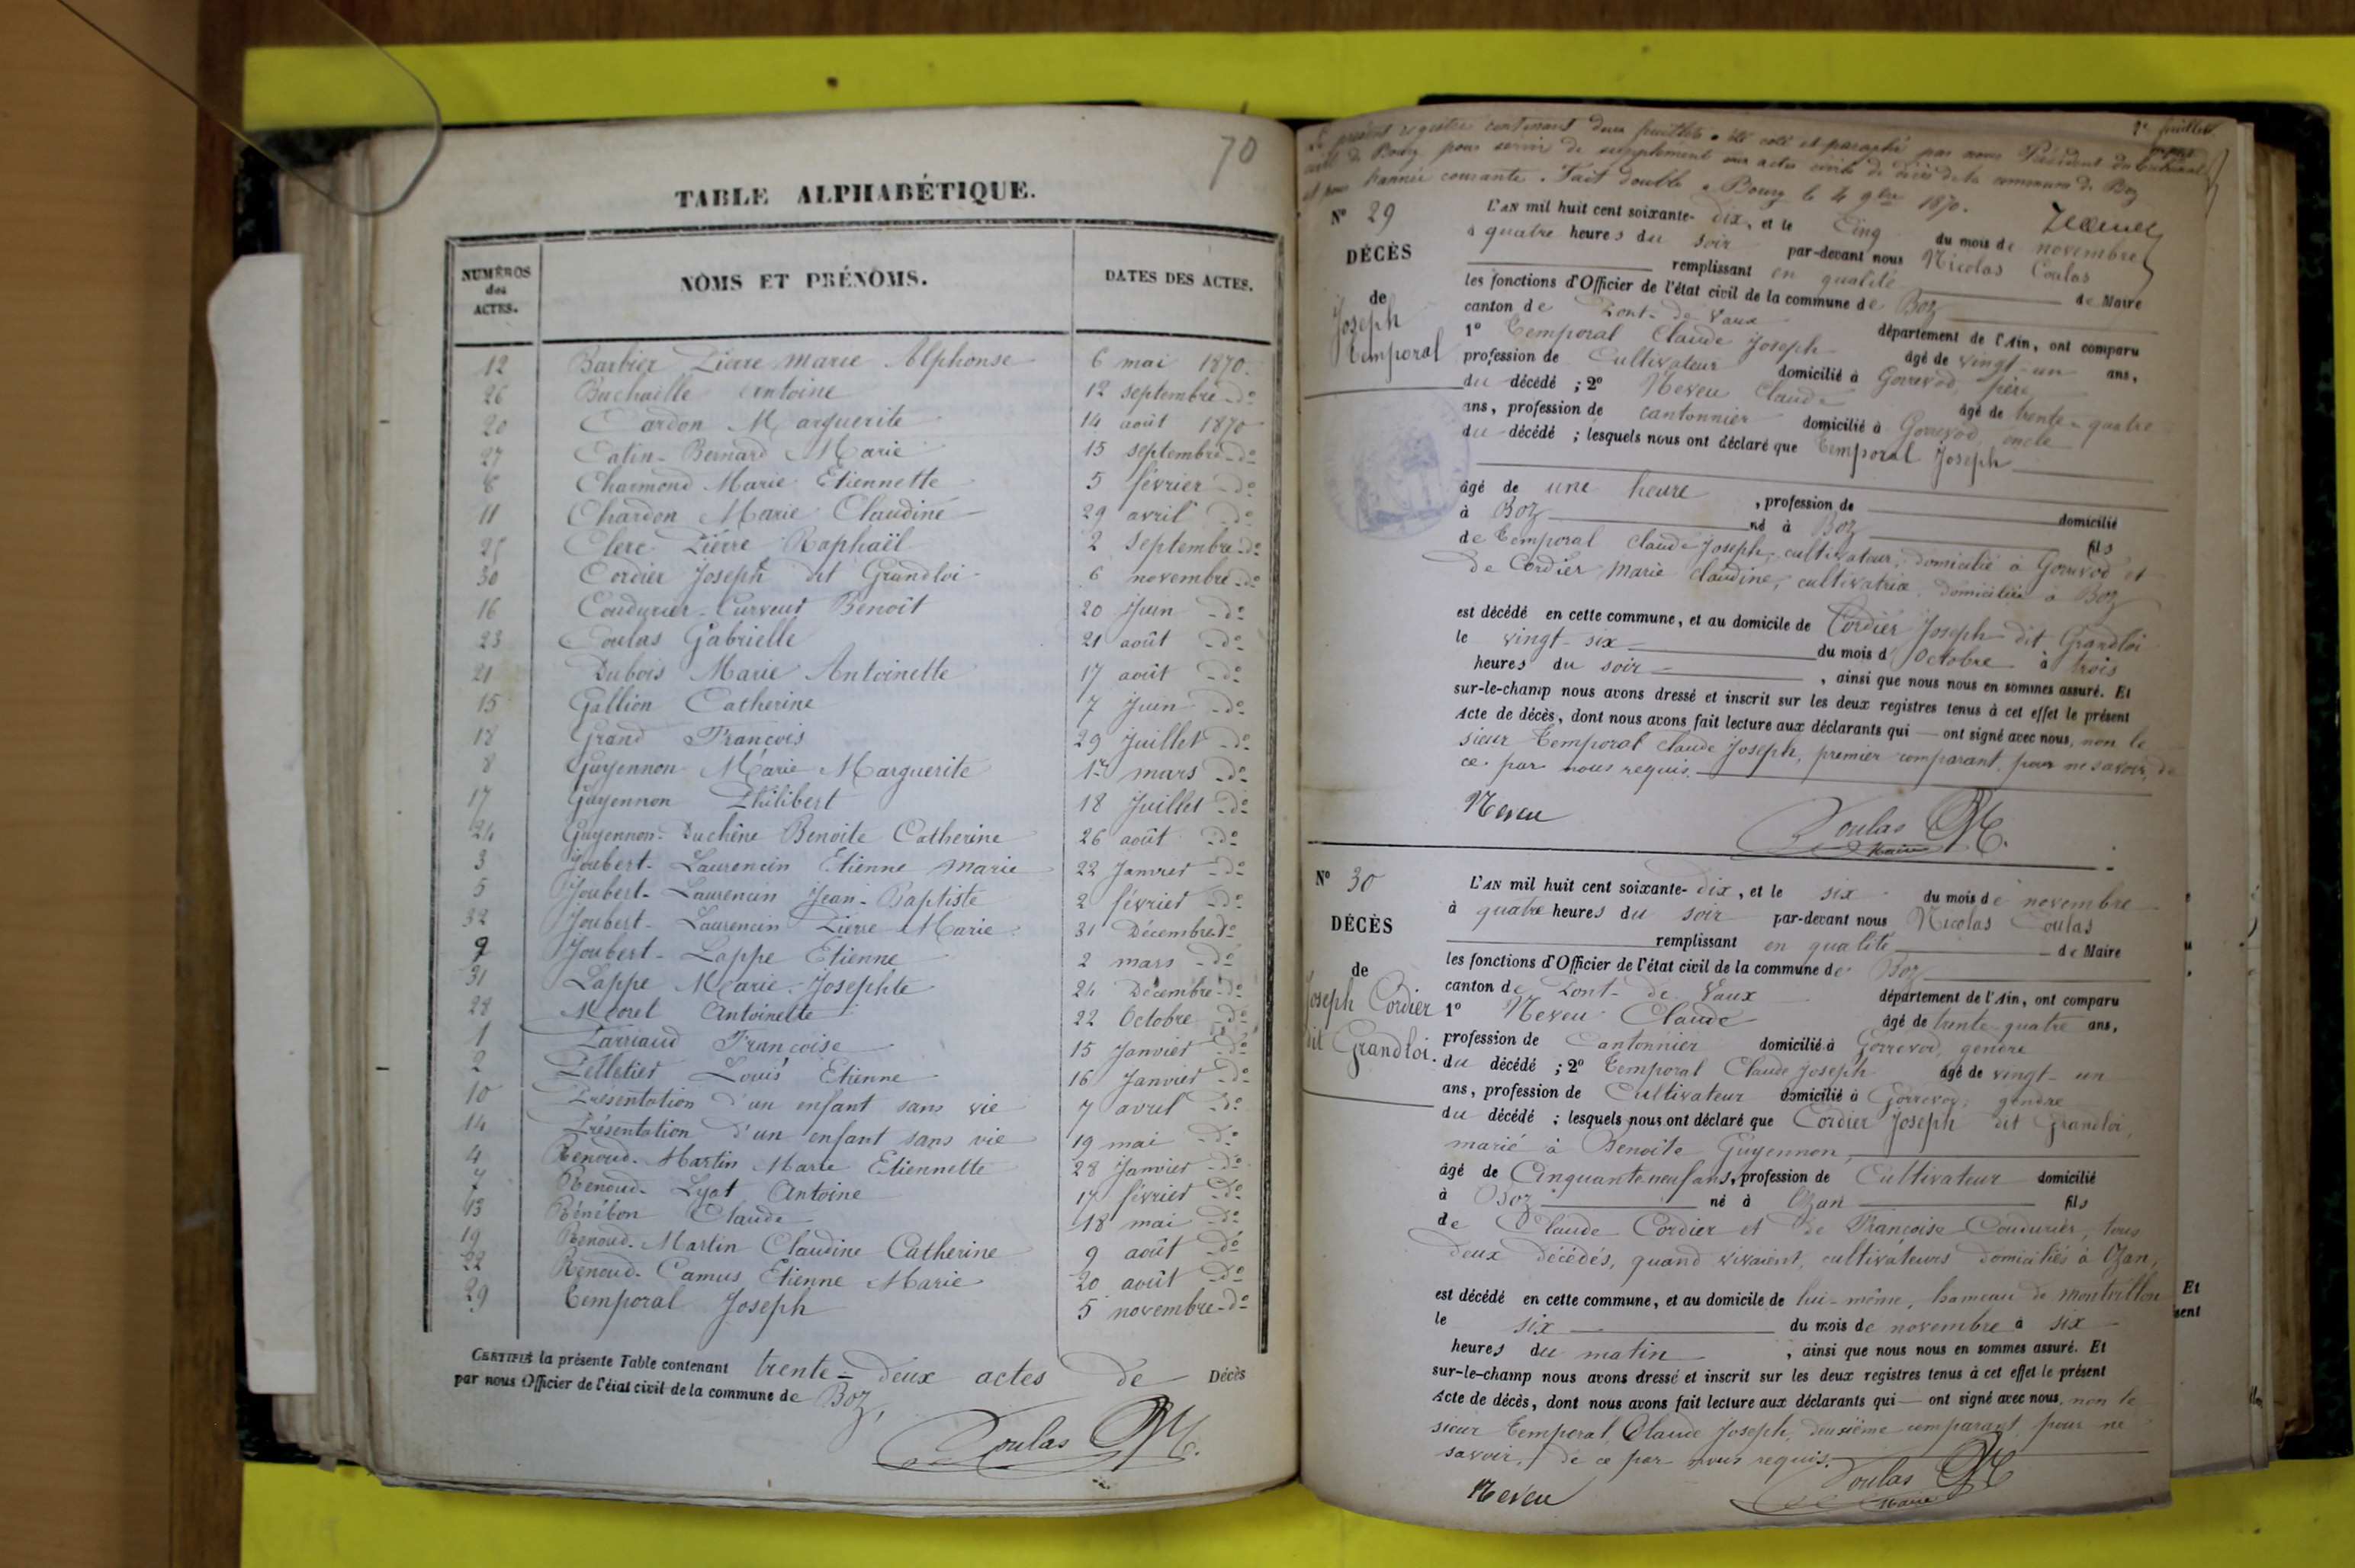 70
TABLE ALPHABÉTIQUE.
NUMÉROS des ACTES.
NOMS ET PRÉNOMS.
DATES DES ACTES.
12 Barbier Pierre Marie Alphonse 6 mai 1870.
26 Buchaille Antoine 12 septembre do
20 Cardon Marguerite 14 août 1870
27 Catin-Bernard Marie 15 septembre do
6 Charmond Marie Etiennette 5 février do
11 Chardon Marie Claudine 29 avril do
25 Clerc Pierre Raphaël 2 septembre do
30 Cordier Joseph dit Grandloi 6 novembre do
16 Coudurier-Curveur Benoît 20 Juin do
23 Coulas Gabrielle 21 août do
21 Dubois Marie Antoinette 17 août do
15 Gallion Catherine 7 Juin do
18 Grand François 29 Juillet do
8 Guyennon Marie Marguerite 1er mars do
17 Guyennon Philibert 18 Juillet do
24 Guyennon-Duchêne Benoite Catherine 26 août do
3 Joubert-Laurencin Etienne Marie 22 Janvier do
5 Joubert-Laurencin Jean-Baptiste 2 février do
32 Joubert-Laurencin Pierre Marie 31 Décembre do
9 Joubert-Lappe Etienne 2 mars do
31 Lappe Marie-Josephte 24 Décembre do
28 Morel Antoinette 22 Octobre do
1 Parriaud Françoise 15 Janvier do
2 Pelletier Louis Etienne 16 Janvier do
10 Présentation d'un enfant sans vie 7 avril do
14 Présentation d'un enfant sans vie 19 mai do
4 Renoud-Martin Marie Etiennette 28 Janvier do
7 Renoud-Lyat Antoine 17 février do
13 Rénébon Claude 18 mai do
19 Renoud-Martin Claudine Catherine 9 août do
22 Renoud-Camus Etienne Marie 20 août do
29 Temporal Joseph 5 novembre do
CERTIFIÉ la présente Table contenant trente-deux actes de DÉCÈS
par nous Officier de l'état civil de la commune de Boz,
Coulas
Le présent registre contenant deux feuillets a été coté et paraphé par nous Président du tribunal
civil de Bourg pour servir de supplément aux actes civils de décès de la commune de Boz
et pour l'année courante. Fait double à Bourg le 4 9bre 1870.
No 29
DÉCÈS
de
Joseph
Temporal
L'AN mil huit cent soixante-dix, et le Cinq du mois de novembre
à quatre heures du soir par-devant nous Nicolas Coulas
remplissant en qualité de Maire
les fonctions d'Officier de l'état civil de la commune de Boz
canton de Pont-de-Vaux département de l'Ain, ont comparu
1o Temporal Claude Joseph âgé de vingt-un ans,
profession de Cultivateur domicilié à Gorrevod, père
du décédé ; 2o Neveu Claude âgé de trente-quatre
ans, profession de cantonnier domicilié à Gorrevod, oncle
du décédé ; lesquels nous ont déclaré que Temporal Joseph
âgé de une heure, profession de domicilié
à Boz né à Boz fils
de Temporal Claude Joseph, cultivateur, domicilié à Gorrevod et
de Cordier Marie Claudine, cultivatrice, domiciliée à Boz
est décédé en cette commune, et au domicile de Cordier Joseph dit Grandloi
le vingt-six du mois d'Octobre à trois
heures du soir, ainsi que nous nous en sommes assuré. Et
sur-le-champ nous avons dressé et inscrit sur les deux registres tenus à cet effet le présent
Acte de décès, dont nous avons fait lecture aux déclarants qui — ont signé avec nous, non le
sieur Temporal Claude Joseph, premier comparant, pour ne savoir, de
ce par nous requis.
Neveu
Coulas
Maire
No 30
DÉCÈS
de
Joseph Cordier
dit Grandloi.
L'AN mil huit cent soixante-dix, et le six du mois de novembre
à quatre heures du soir par-devant nous Nicolas Coulas
remplissant en qualité de Maire
les fonctions d'Officier de l'état civil de la commune de Boz
canton de Pont-de-Vaux département de l'Ain, ont comparu
1o Neveu Claude âgé de trente-quatre ans,
profession de Cantonnier domicilié à Gorrevod, gendre
du décédé ; 2o Temporal Claude Joseph âgé de vingt-un
ans, profession de Cultivateur domicilié à Gorrevod, gendre
du décédé ; lesquels nous ont déclaré que Cordier Joseph dit Grandloi,
marié à Benoite Guyennon,
âgé de Cinquante-neuf ans, profession de Cultivateur domicilié
à Boz né à Ozan fils
de Claude Cordier et de Françoise Coudurier, tous
deux décédés, quand vivaient, cultivateurs domiciliés à Ozan,
est décédé en cette commune, et au domicile de lui-même, hameau de Montrillon
le six du mois de novembre à six
heures du matin, ainsi que nous nous en sommes assuré. Et
sur-le-champ nous avons dressé et inscrit sur les deux registres tenus à cet effet le présent
Acte de décès, dont nous avons fait lecture aux déclarants qui — ont signé avec nous, non le
sieur Temporal Claude Joseph, deuxième comparant, pour ne
savoir, de ce par nous requis.
Neveu
Coulas
Maire